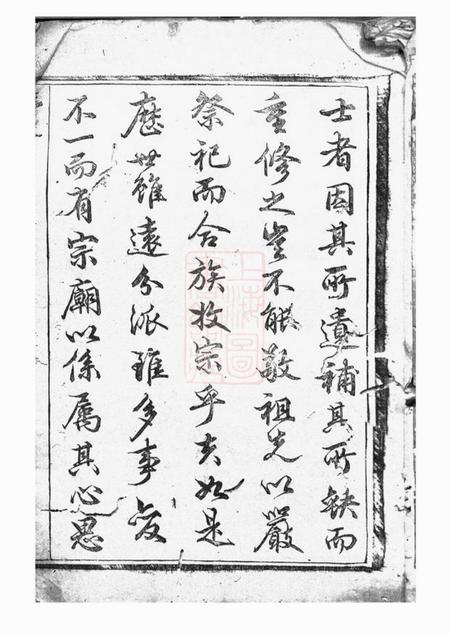 士者因其所遺補其所缺而
重修之豈不能敬祖先以嚴
祭祀而合族收宗乎夫如是
歷世雖遠分派雖多事變
不一而有宗廟以係屬其心恩